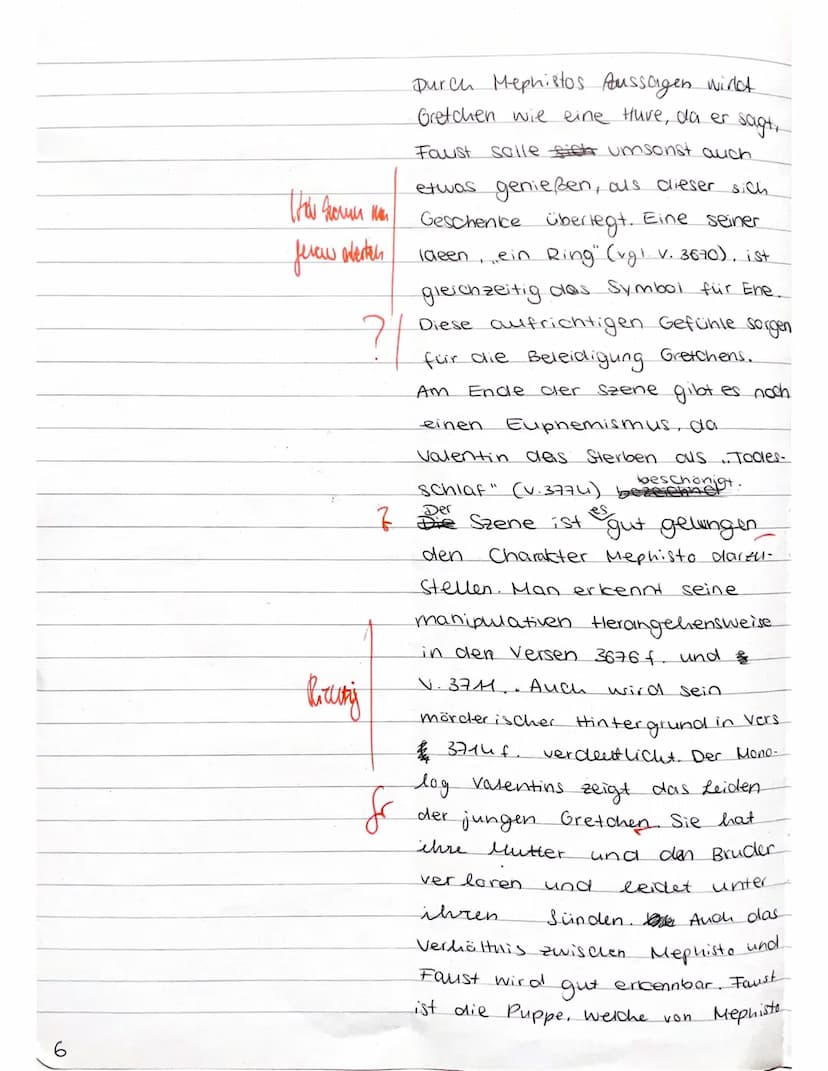 Durch Mephistos Aussagen wirkt
Gretchen wie eine Hure, da er sagt,
Faust solle sich umsonst auch
etwas genießen, als dieser sich
Geschenke überlegt. Eine seiner
Ideen, „ein Ring" (vgl. V. 3670), ist
gleichzeitig das Symbol für Ehe.
?
Diese aufrichtigen Gefühle sorgen
für die Beleidigung Gretchens.
Am Ende der Szene gibt es noch
einen Euphemismus, da
Valentin das Sterben als „Todes-
schlaf" (V. 3774) bezeichnet beschönigt.
Die Der Szene ist es gut gelungen
den Charakter Mephisto darzu-
stellen. Man erkennt seine
manipulativen Herangehensweise
in den Versen 3676 f. und
Richtig
V. 3711.. Auch wird sein
mörderischer Hintergrund in Vers
3714 f. verdeutlicht. Der Mono-
log Valentins zeigt das Leiden
Gr
der jungen Gretchen. Sie hat
ihre Mutter und den Bruder
verloren und leidet unter
ihren Sünden. Auch das
Verhältnis zwischen Mephisto und
Faust wird gut erkennbar. Faust
ist die Puppe, welche von Mephisto
6